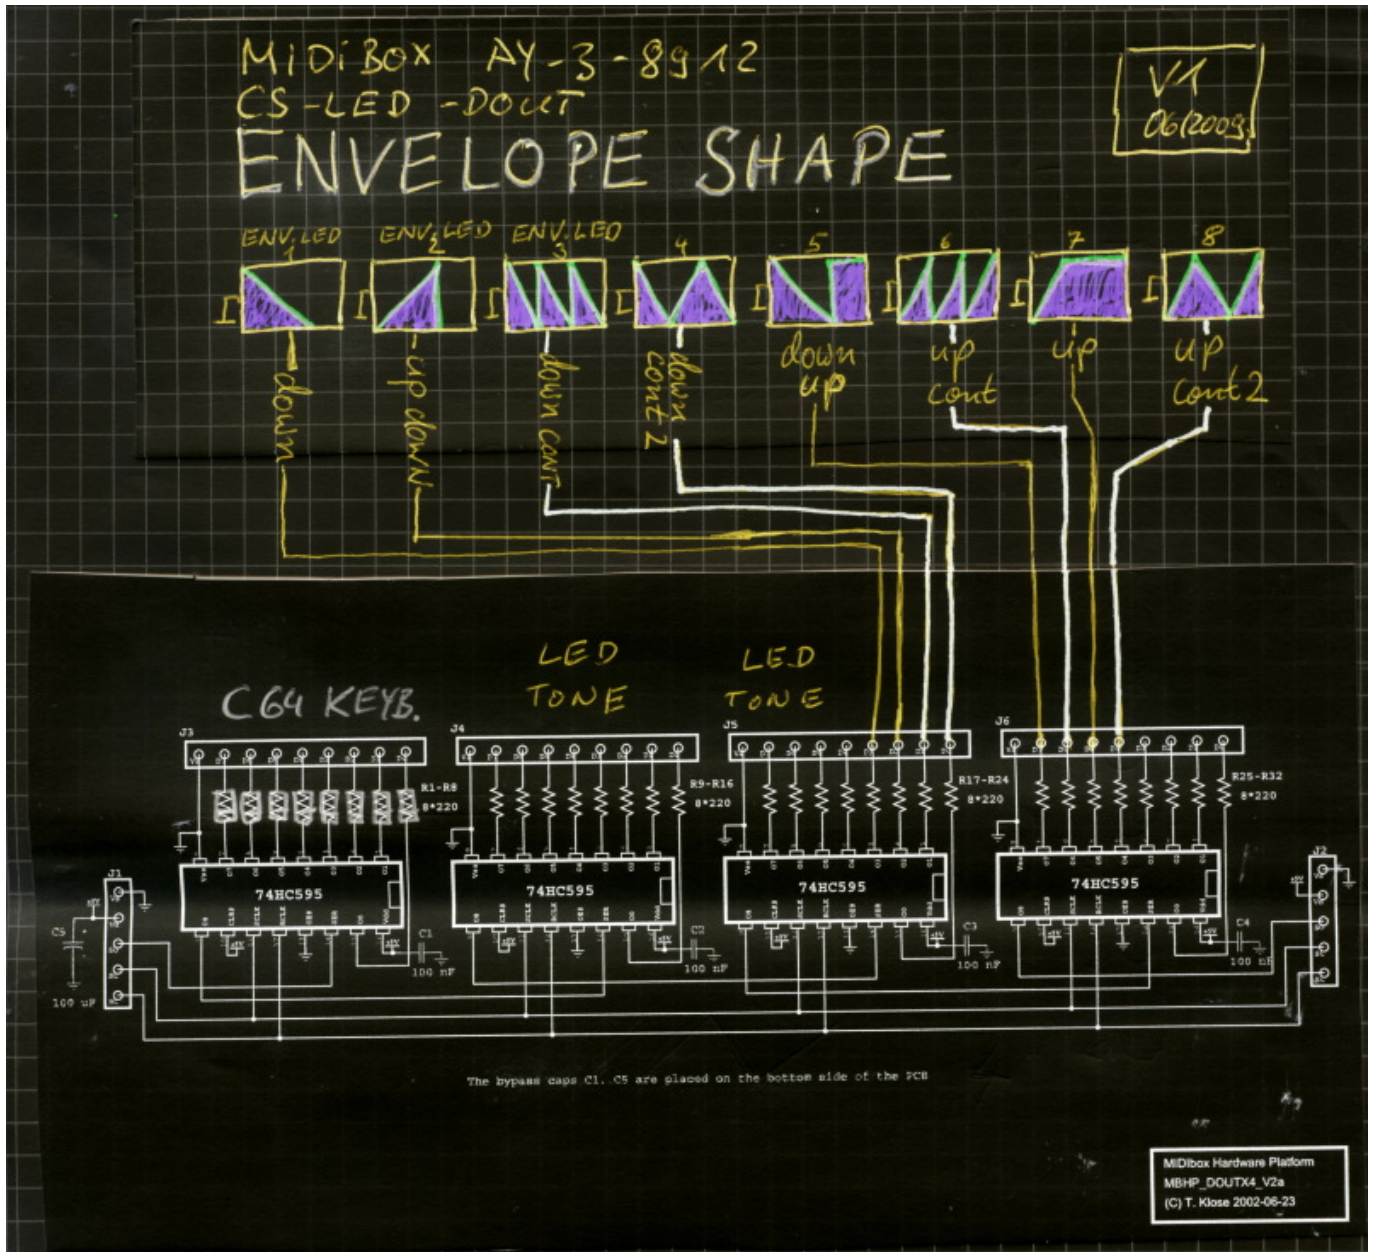 MIDIBOX AY-3-8912
CS-LED-DOUT
ENVELOPE SHAPE
V1
06/2009
ENV.LED
1
ENV.LED
2
ENV.LED
3
4
5
6
7
8
down
up down
down cont
down
cont 2
down
up
up
cont
up
up
cont 2
C64 KEYB.
LED
TONE
LED
TONE
J3
J4
J5
J6
R1-R8
8*220
R9-R16
8*220
R17-R24
8*220
R25-R32
8*220
74HC595
74HC595
74HC595
74HC595
J1
J2
C5
100 uF
C1
100 nF
C2
100 nF
C3
100 nF
C4
100 nF
The bypass caps C1..C5 are placed on the bottom side of the PCB
MIDIbox Hardware Platform
MBHP_DOUTX4_V2a
(C) T. Klose 2002-06-23